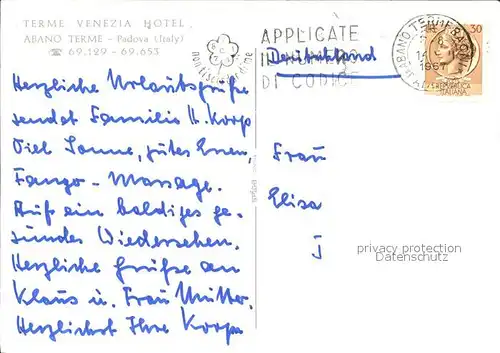 TERME VENEZIA HOTEL
ABANO TERME - Padova (Italy)
☎ 69.129 - 69.653
Herzliche Urlaubsgrüße
sendet Familie H. Korp
Viel Sonne, gutes Essen,
Fango - Massage.
Auf ein baldiges ge-
sundes Wiedersehen.
Herzliche Grüße an
Klaus u. Frau Mutter.
Herzlichst Ihre Korps
APPLICATE
IL NUMERO
DI CODICE
Deutschland
ABANO TERME BAGNI
1967
30
REPUBBLICA
ITALIANA
Frau
Elisa
J
privacy protection
Datenschutz